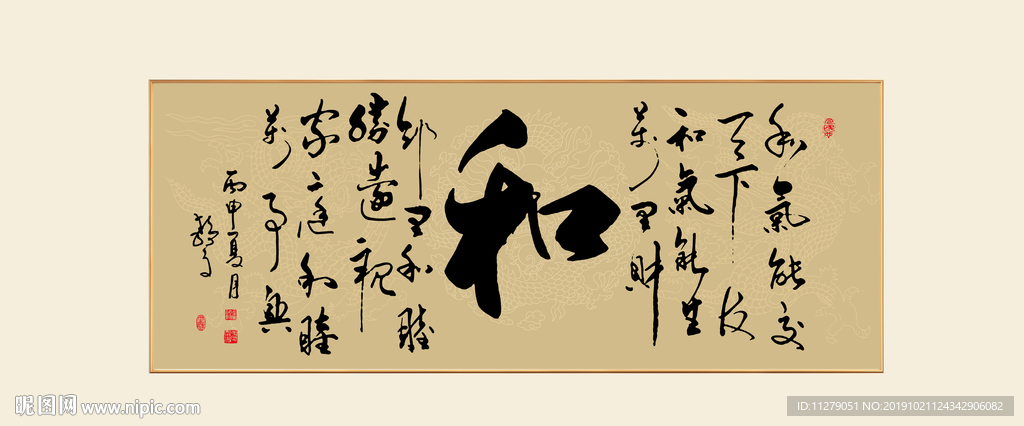 和氣能交
天下友
和氣能生
萬里財
和
鄰里和睦
勝遠親
家庭和睦
萬事興
丙申夏月
昵图网 www.nipic.com
ID:11279051 NO:20191021124342906082